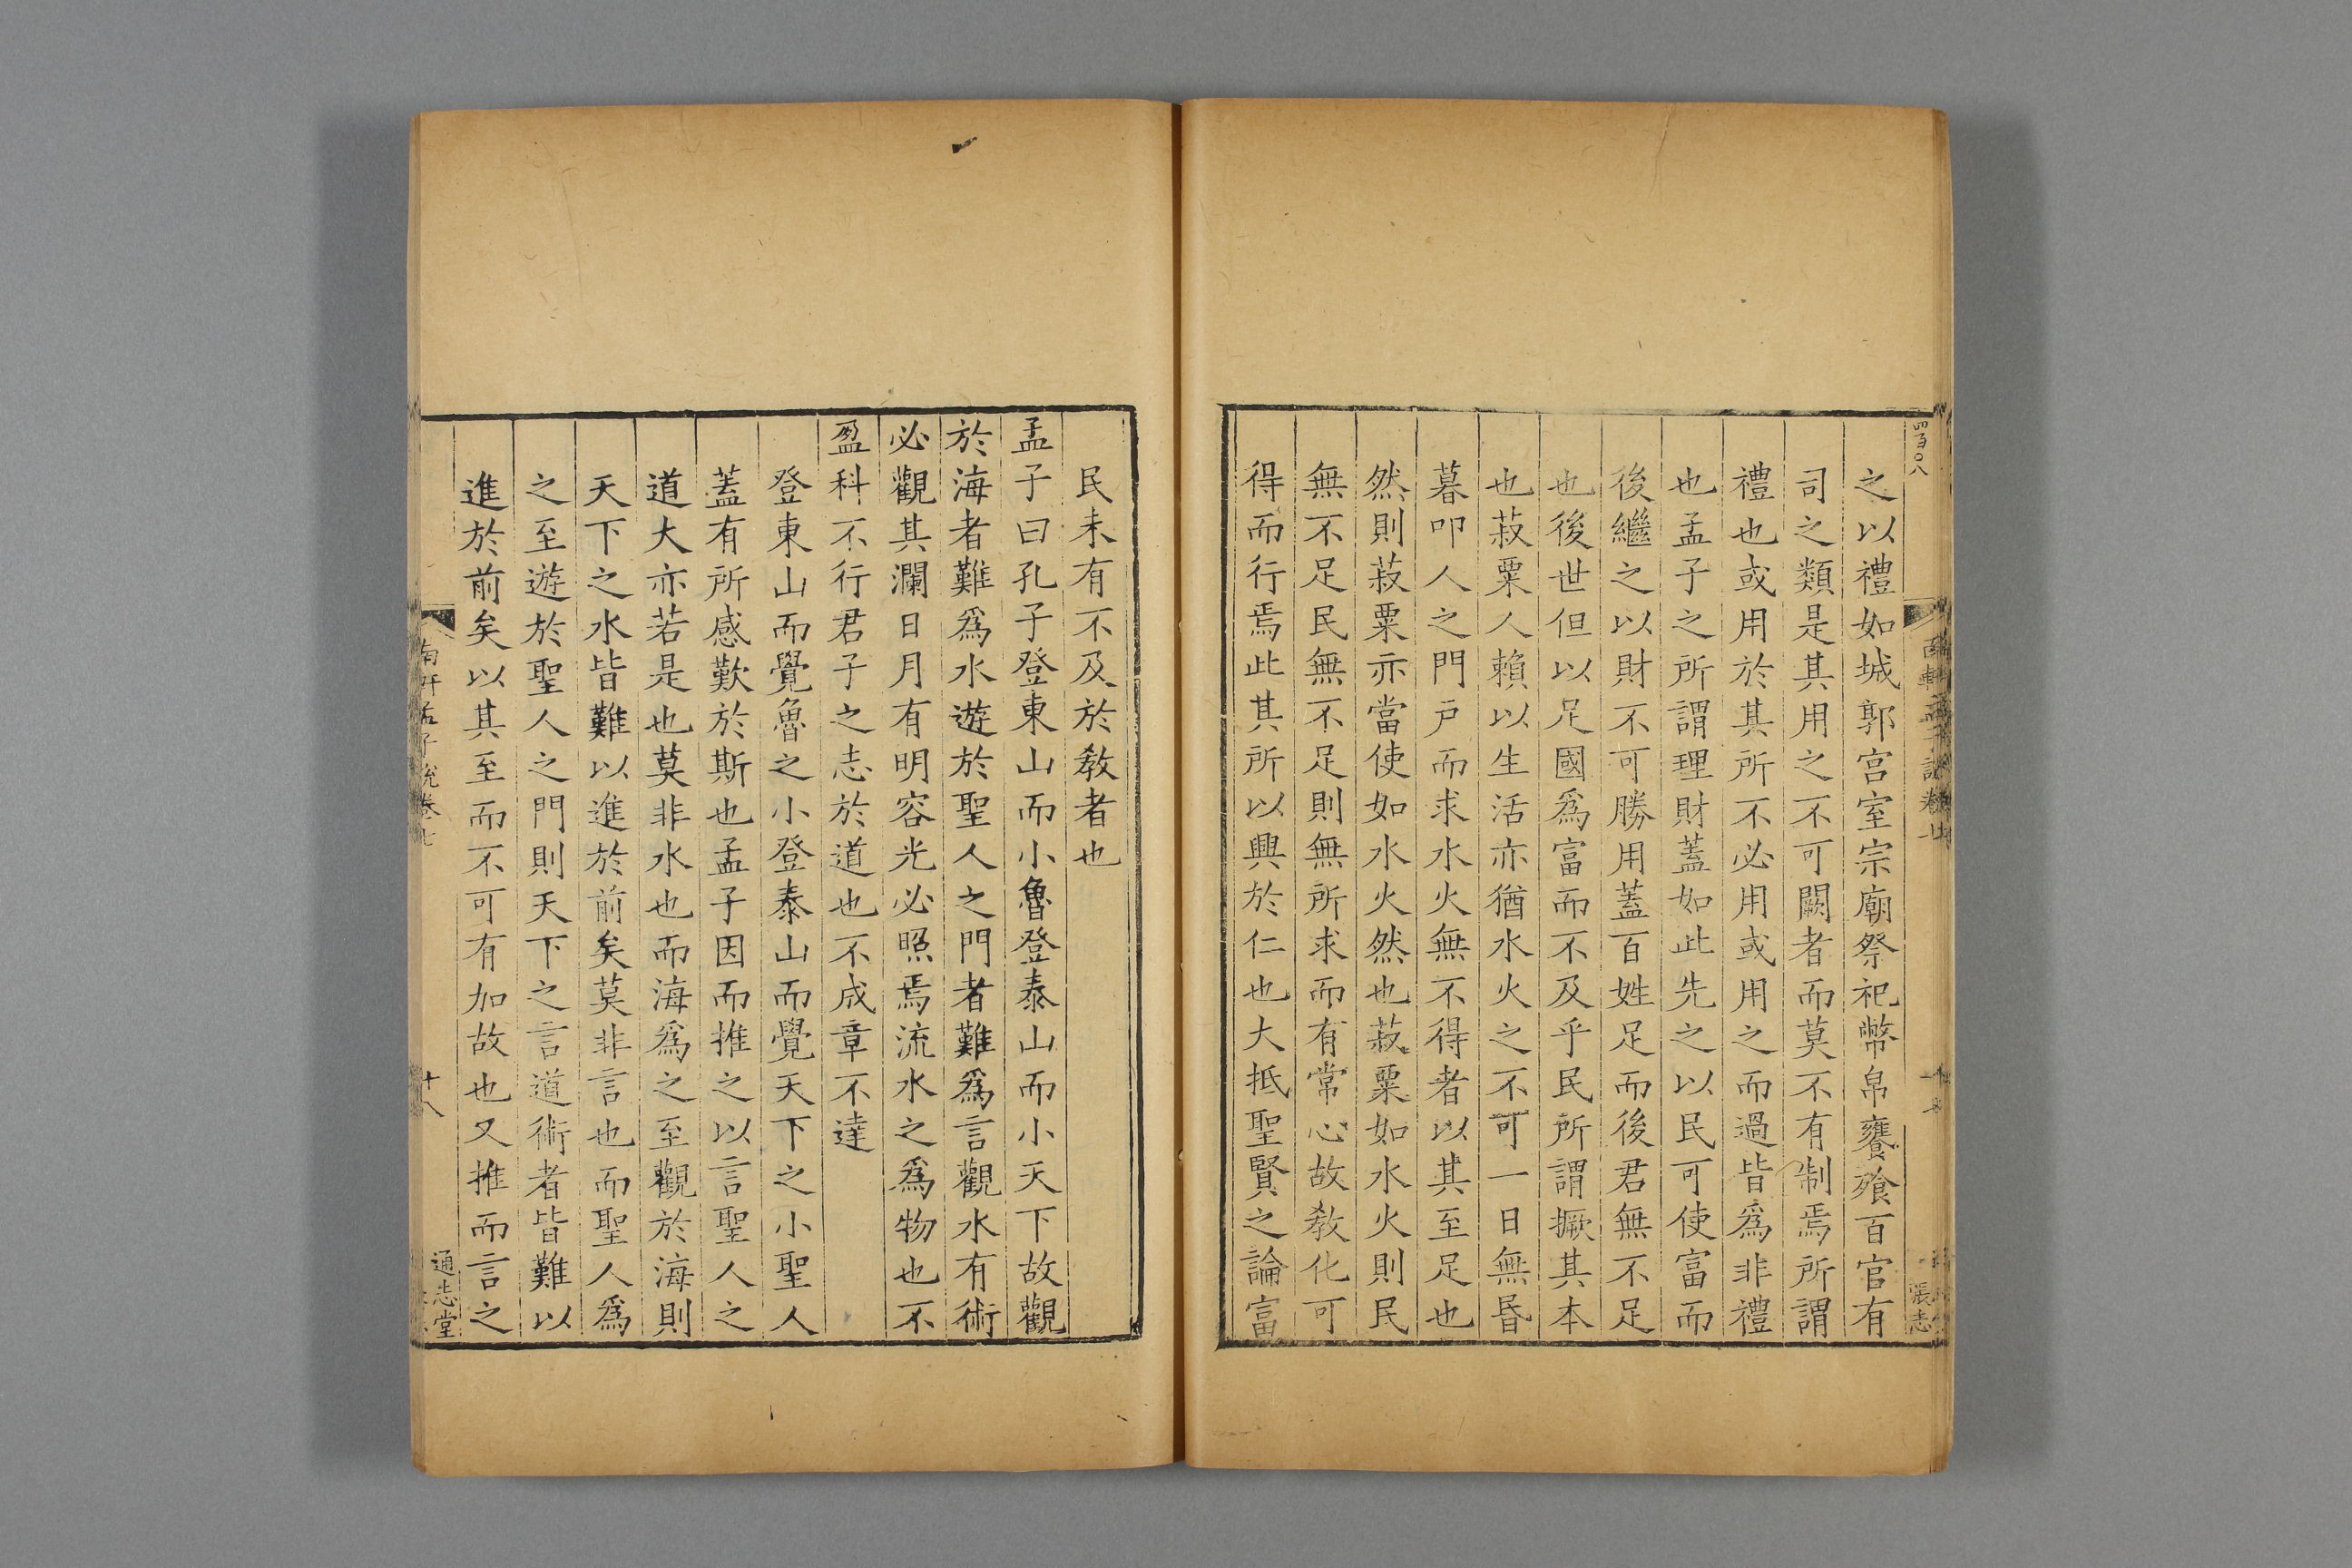 四百○八
之以禮如城郭宮室宗廟祭祀幣帛饔飱百官有
司之類是其用之不可闕者而莫不有制焉所謂
禮也或用於其所不必用或用之而過皆爲非禮
也孟子之所謂理財蓋如此先之以民可使富而
後繼之以財不可勝用蓋百姓足而後君無不足
也後世但以足國爲富而不及乎民所謂撅其本
也菽粟人賴以生活亦猶水火之不可一日無昏
暮叩人之門戸而求水火無不得者以其至足也
然則菽粟亦當使如水火然也菽粟如水火則民
無不足民無不足則無所求而有常心故敎化可
得而行焉此其所以興於仁也大抵聖賢之論富
民未有不及於敎者也
孟子曰孔子登東山而小魯登泰山而小天下故觀
於海者難爲水遊於聖人之門者難爲言觀水有術
必觀其瀾日月有明容光必照焉流水之爲物也不
盈科不行君子之志於道也不成章不達
登東山而覺魯之小登泰山而覺天下之小聖人
蓋有所感歎於斯也孟子因而推之以言聖人之
道大亦若是也莫非水也而海爲之至觀於海則
天下之水皆難以進於前矣莫非言也而聖人爲
之至遊於聖人之門則天下之言道術者皆難以
進於前矣以其至而不可有加故也又推而言之
南軒孟子說卷七
十八
通志堂